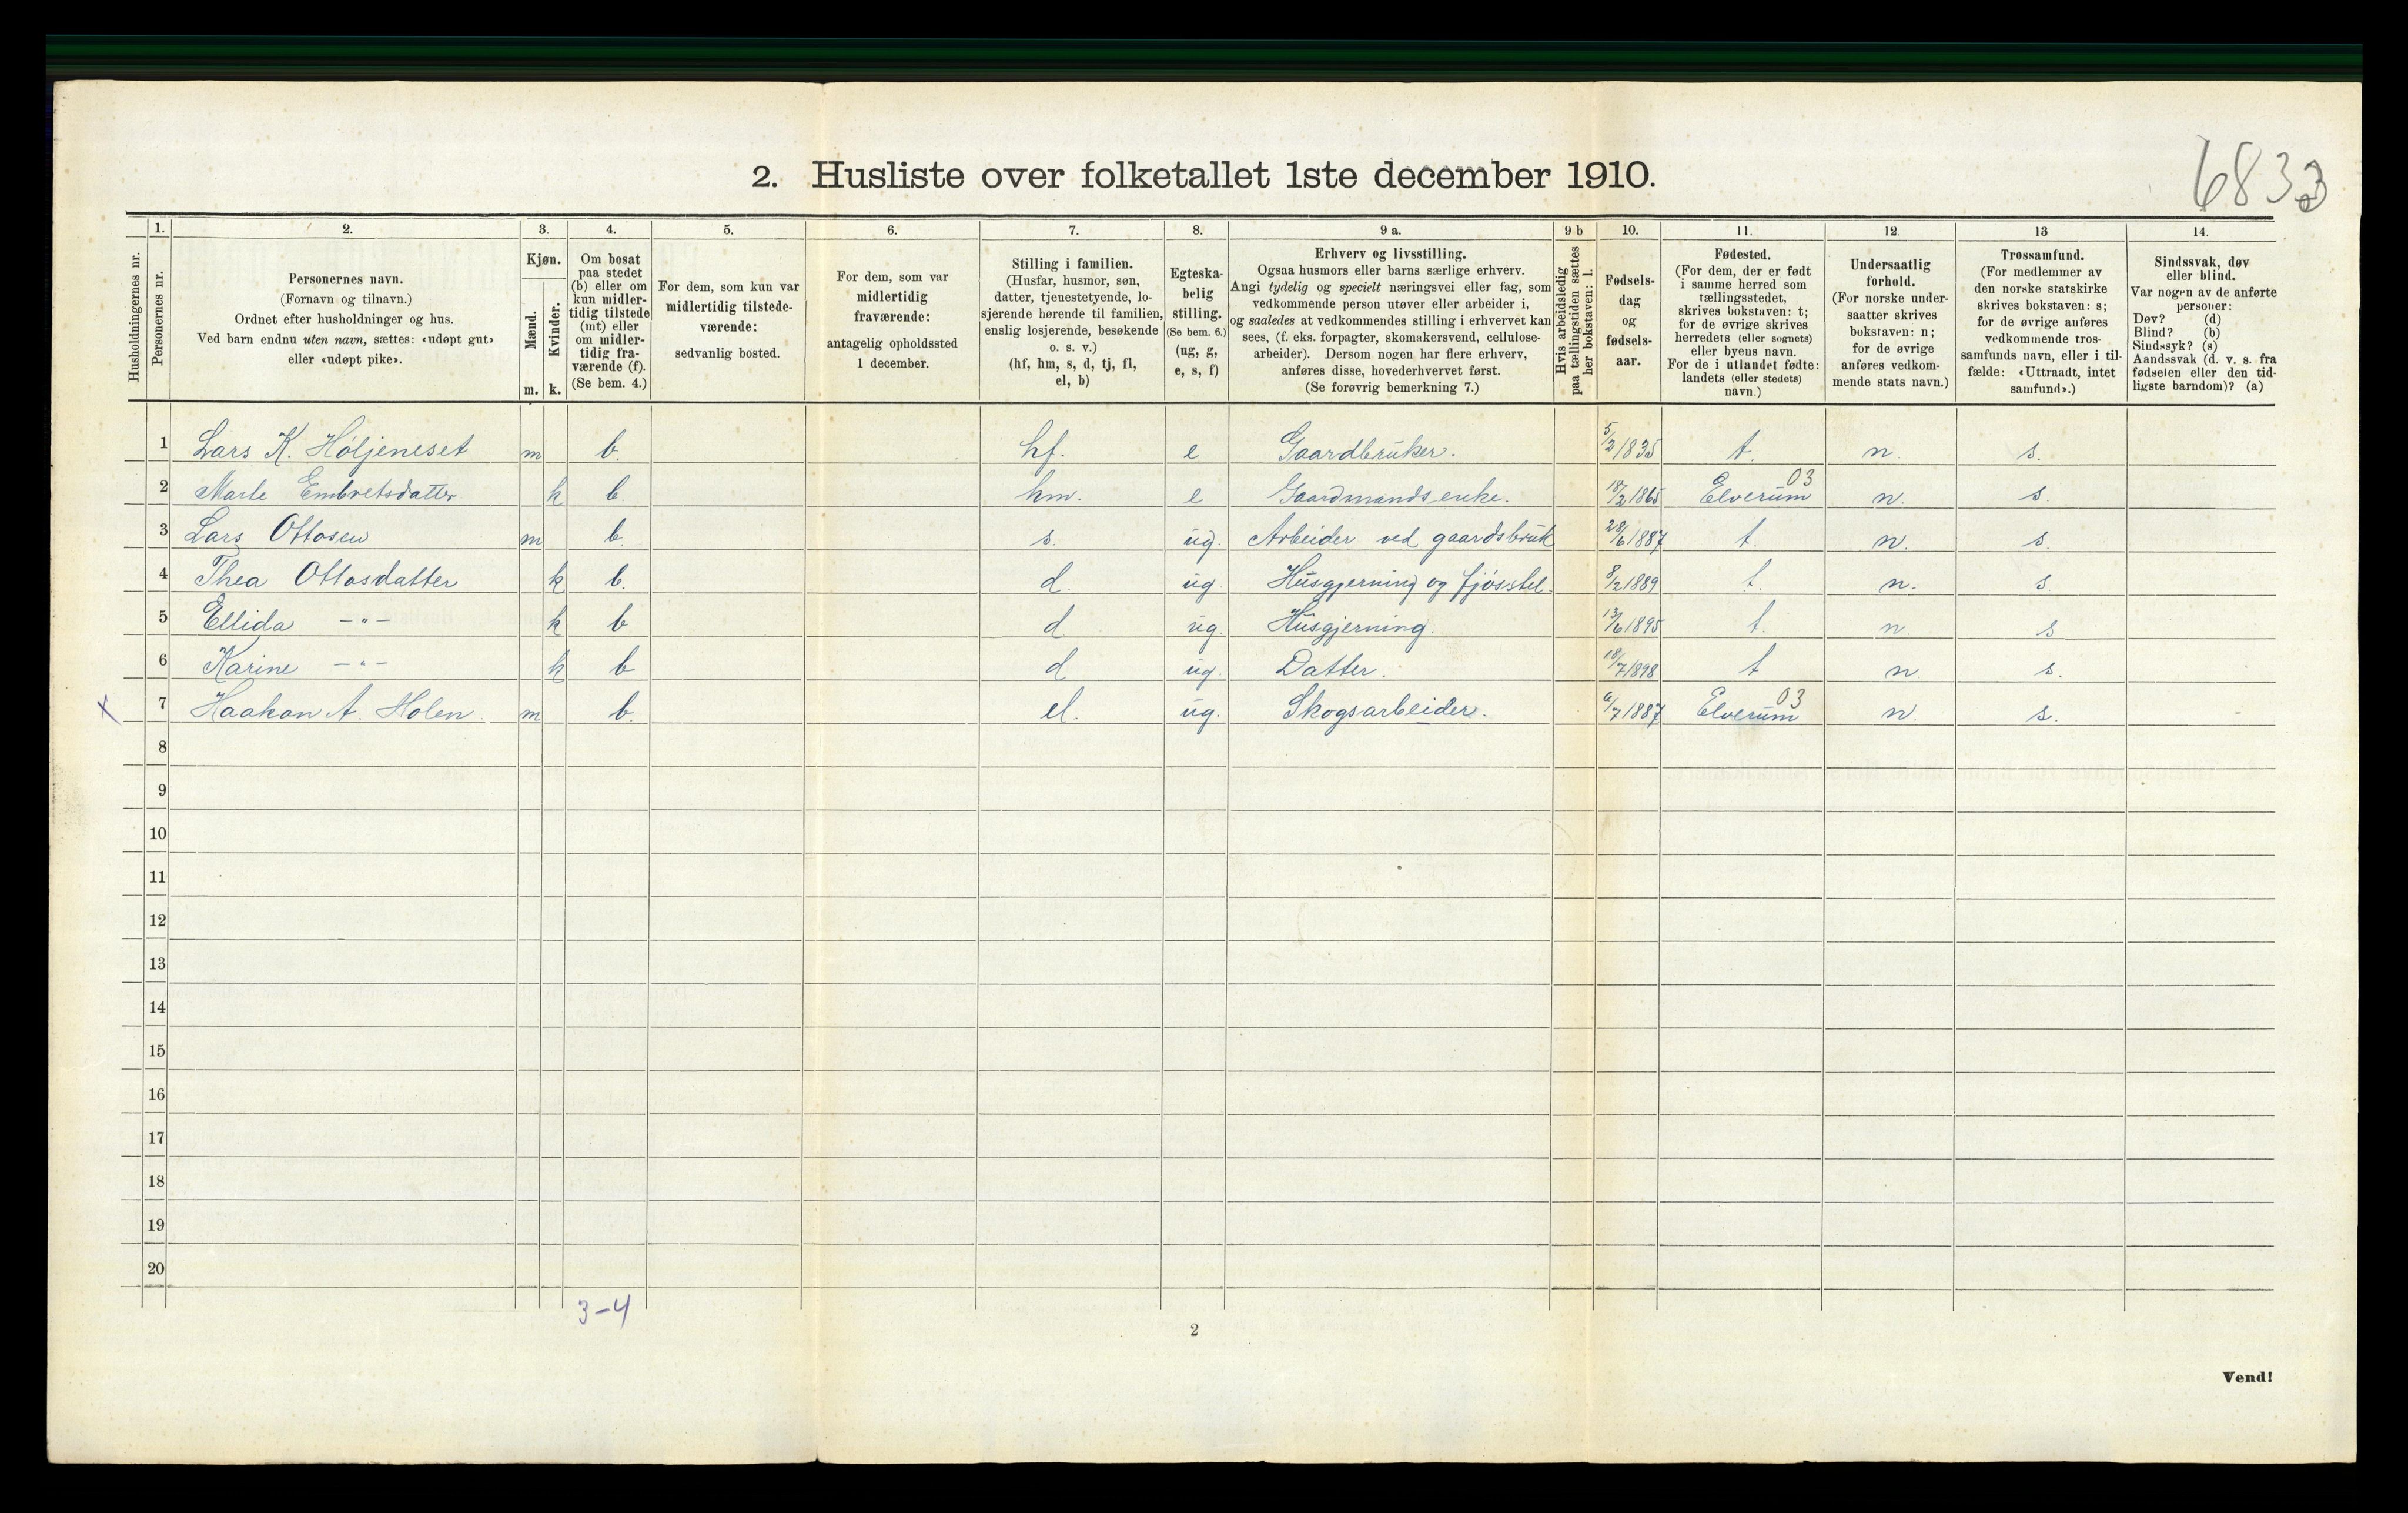 6833
2. Husliste over folketallet 1ste december 1910.
Husholdningernes nr.
1. Personernes nr.
2. Personernes navn. (Fornavn og tilnavn.) Ordnet efter husholdninger og hus. Ved barn endnu uten navn, sættes: «udøpt gut» eller «udøpt pike».
3. Kjøn. Mænd. m. Kvinder. k.
4. Om bosat paa stedet (b) eller om kun midlertidig tilstede (mt) eller om midlertidig fraværende (f). (Se bem. 4.)
5. For dem, som kun var midlertidig tilstedeværende: sedvanlig bosted.
6. For dem, som var midlertidig fraværende: antagelig opholdssted 1 december.
7. Stilling i familien. (Husfar, husmor, søn, datter, tjenestetyende, losjerende hørende til familien, enslig losjerende, besøkende o. s. v.) (hf, hm, s, d, tj, fl, el, b)
8. Egteskabelig stilling. (Se bem. 6.) (ug, g, e, s, f)
9 a. Erhverv og livsstilling. Ogsaa husmors eller barns særlige erhverv. Angi tydelig og specielt næringsvei eller fag, som vedkommende person utøver eller arbeider i, og saaledes at vedkommendes stilling i erhvervet kan sees, (f. eks. forpagter, skomakersvend, cellulosearbeider). Dersom nogen har flere erhverv, anføres disse, hovederhvervet først. (Se forøvrig bemerkning 7.)
9 b Hvis arbeidsledig paa tællingstiden sættes her bokstaven: l.
10. Fødselsdag og fødselsaar.
11. Fødested. (For dem, der er født i samme herred som tællingsstedet, skrives bokstaven: t; for de øvrige skrives herredets (eller sognets) eller byens navn. For de i utlandet fødte: landets (eller stedets) navn.)
12. Undersaatlig forhold. (For norske undersaatter skrives bokstaven: n; for de øvrige anføres vedkommende stats navn.)
13 Trossamfund. (For medlemmer av den norske statskirke skrives bokstaven: s; for de øvrige anføres vedkommende trossamfunds navn, eller i tilfælde: «Uttraadt, intet samfund».)
14. Sindssvak, døv eller blind. Var nogen av de anførte personer: Døv? (d) Blind? (b) Sindssyk? (s) Aandssvak (d. v. s. fra fødselen eller den tidligste barndom)? (a)
1 Lars K. Høljeneset m b. hf. e Gaardbruker. 5/2 1835 t. n. s.
2 Marte Embretsdatter k b hm. e Gaardmandsenke. 18/2 1865 Elverum 03 n. s.
3 Lars Ottosen m b. s. ug. Arbeider ved gaardsbruk 28/6 1887 t. n. s.
4 Thea Ottosdatter k b. d. ug Husgjerning og fjøsstel. 8/2 1889 t. n. s.
5 Ellida -"- k b d ug. Husgjerning. 13/6 1895 t. n s
6 Karine -"- k b d ug. Datter. 18/7 1898 t n. s.
x 7 Haakon A. Holen. m b. el. ug. Skogsarbeider. 6/7 1887 Elverum 03 n. s.
8
9
10
11
12
13
14
15
16
17
18
19
20
3-4
2
Vend!